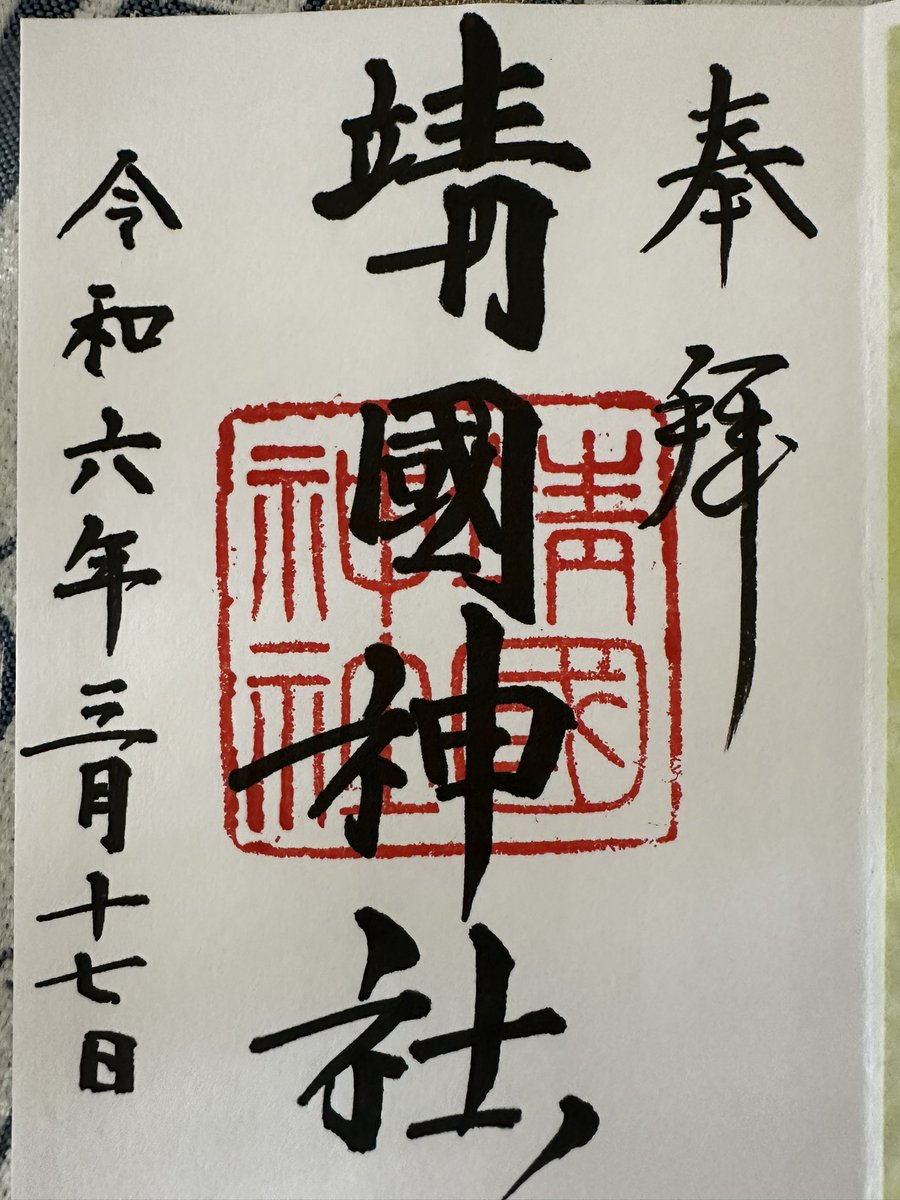 奉拝
靖國神社
靖国神社
令和六年三月十七日